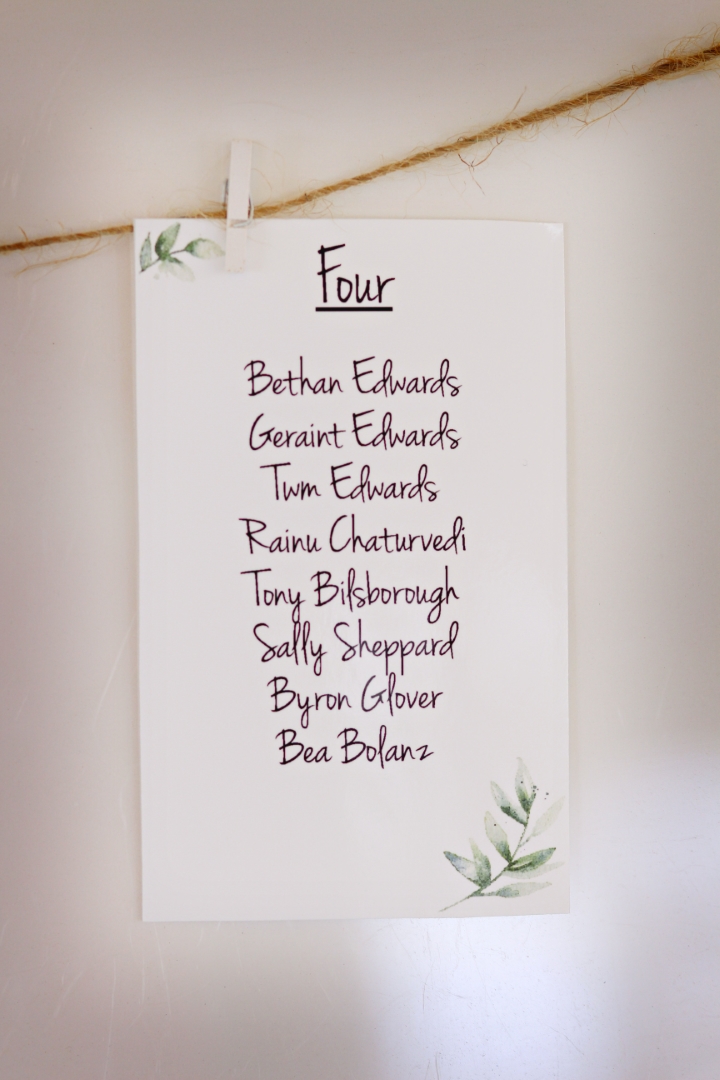 Four
Bethan Edwards
Geraint Edwards
Twm Edwards
Rainu Chaturvedi
Tony Bilsborough
Sally Sheppard
Byron Glover
Bea Bolanz